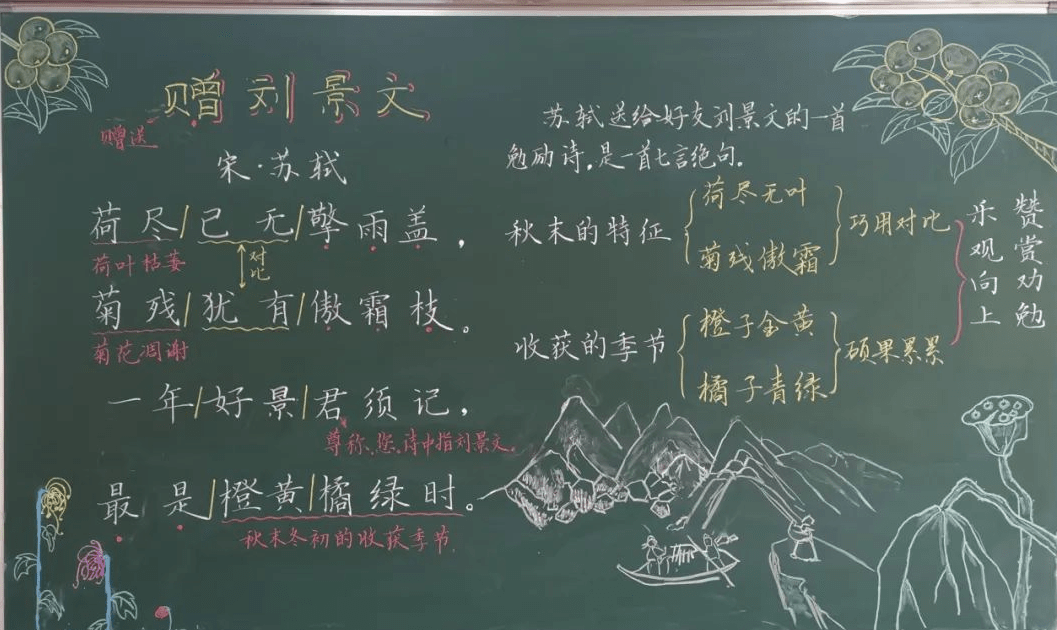 赠刘景文
赠送
宋·苏轼
荷尽/已无/擎雨盖，
荷叶枯萎
对比
菊残/犹有/傲霜枝。
菊花凋谢
一年/好景/君须记，
尊称，您。诗中指刘景文。
最是/橙黄/橘绿时。
秋末冬初的收获季节
苏轼送给好友刘景文的一首
勉励诗，是一首七言绝句。
秋末的特征
荷尽无叶
菊残傲霜
巧用对比
收获的季节
橙子金黄
橘子青绿
硕果累累
乐观向上
赞赏劝勉